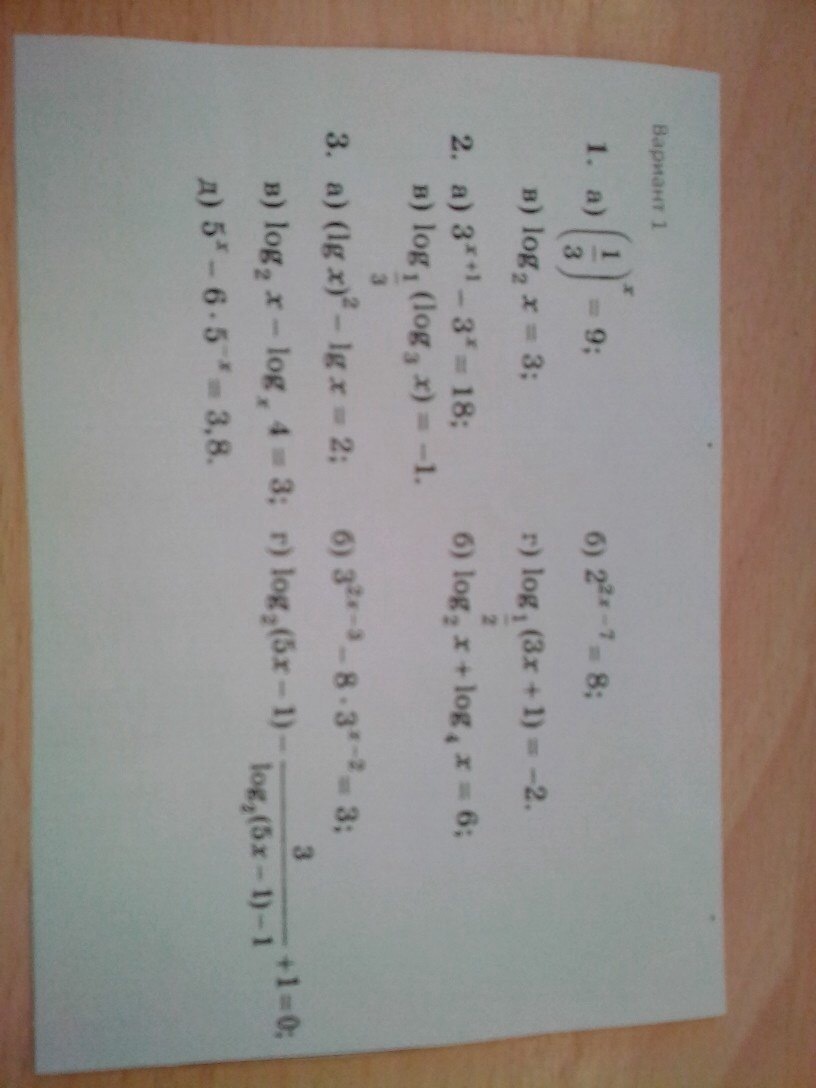 Вариант 1
1. а) (1/3)^x = 9; б) 2^(2x−7) = 8;
в) log_2 x = 3; г) log_(1/2) (3x + 1) = −2.
2. а) 3^(x+1) − 3^x = 18; б) log_2 x + log_4 x = 6;
в) log_(1/3) (log_3 x) = −1.
3. а) (lg x)^2 − lg x = 2; б) 3^(2x−3) − 8 · 3^(x−2) = 3;
в) log_2 x − log_x 4 = 3; г) log_2(5x − 1) − 3/(log_2(5x − 1) − 1) + 1 = 0;
д) 5^x − 6 · 5^(−x) = 3,8.